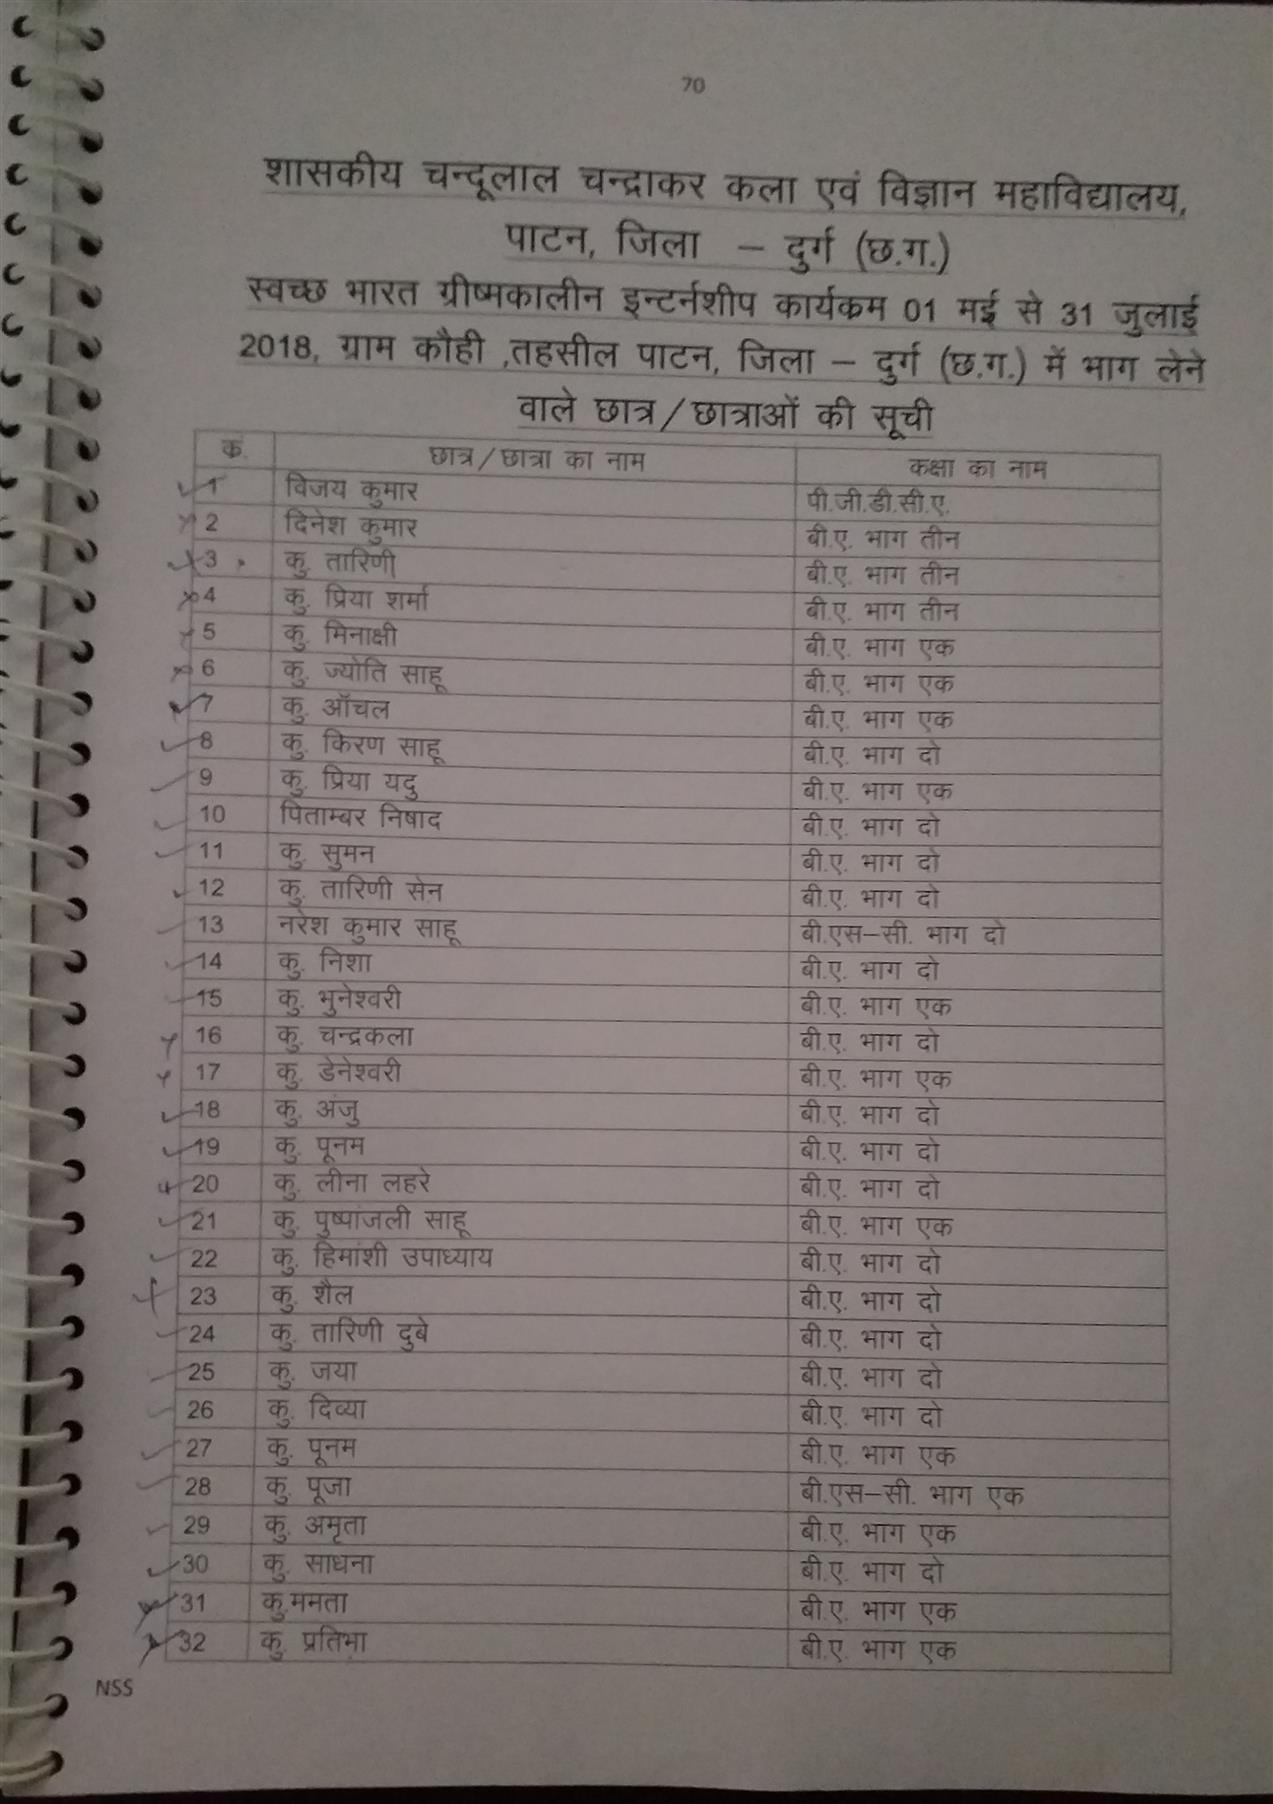 70
शासकीय चन्दूलाल चन्द्राकर कला एवं विज्ञान महाविद्यालय,
पाटन, जिला – दुर्ग (छ.ग.)
स्वच्छ भारत ग्रीष्मकालीन इन्टर्नशीप कार्यकम 01 मई से 31 जुलाई
2018, ग्राम कौही ,तहसील पाटन, जिला – दुर्ग (छ.ग.) में भाग लेने
वाले छात्र/छात्राओं की सूची
क. छात्र/छात्रा का नाम कक्षा का नाम
1 विजय कुमार पी.जी.डी.सी.ए.
2 दिनेश कुमार बी.ए. भाग तीन
3 कु. तारिणी बी.ए. भाग तीन
4 कु. प्रिया शर्मा बी.ए. भाग तीन
5 कु. मिनाक्षी बी.ए. भाग एक
6 कु. ज्योति साहू बी.ए. भाग एक
7 कु. ऑचल बी.ए. भाग एक
8 कु. किरण साहू बी.ए. भाग दो
9 कु. प्रिया यदु बी.ए. भाग एक
10 पिताम्बर निषाद बी.ए. भाग दो
11 कु. सुमन बी.ए. भाग दो
12 कु. तारिणी सेन बी.ए. भाग दो
13 नरेश कुमार साहू बी.एस–सी. भाग दो
14 कु. निशा बी.ए. भाग दो
15 कु. भुनेश्वरी बी.ए. भाग एक
16 कु. चन्द्रकला बी.ए. भाग दो
17 कु. डेनेश्वरी बी.ए. भाग एक
18 कु. अंजु बी.ए. भाग दो
19 कु. पूनम बी.ए. भाग दो
20 कु. लीना लहरे बी.ए. भाग दो
21 कु. पुष्पांजली साहू बी.ए. भाग एक
22 कु. हिमांशी उपाध्याय बी.ए. भाग दो
23 कु. शैल बी.ए. भाग दो
24 कु. तारिणी दुबे बी.ए. भाग दो
25 कु. जया बी.ए. भाग दो
26 कु. दिव्या बी.ए. भाग दो
27 कु. पूनम बी.ए. भाग एक
28 कु. पूजा बी.एस–सी. भाग एक
29 कु. अमृता बी.ए. भाग एक
30 कु. साधना बी.ए. भाग दो
31 कु.ममता बी.ए. भाग एक
32 कु. प्रतिभा बी.ए. भाग एक
NSS